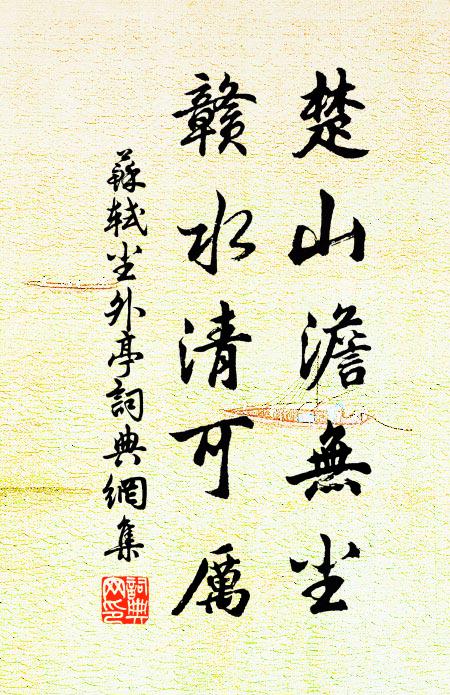 楚山澹無尘
贛水清可厲
蘇軾尘外亭詞典網集
詞典
网印